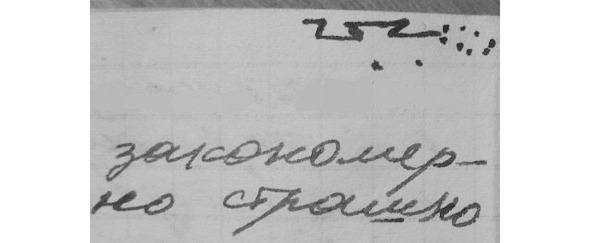 закономер-
но страшно